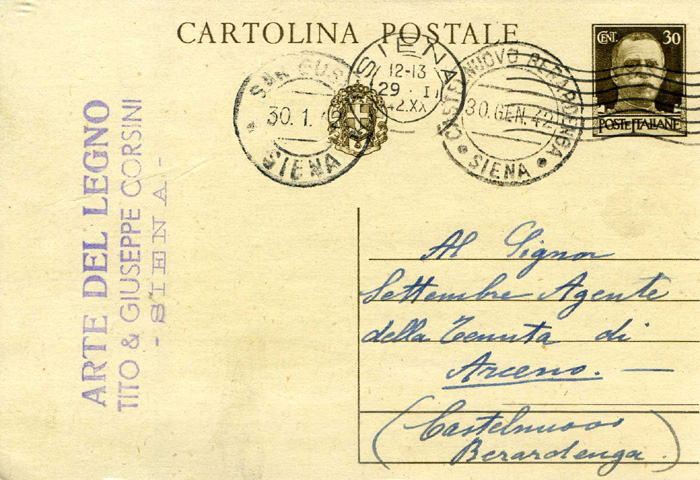 CARTOLINA POSTALE
CENT. 30
POSTE ITALIANE
SIENA
12-13
29 · I
42.XX
SAN GUS
30.1.42
SIENA
CASTELNUOVO BERARDENGA
30.GEN.42
SIENA
ARTE DEL LEGNO
TITO & GIUSEPPE CORSINI
- SIENA -
Al Signor
Settembre Agente
della Tenuta di
Arceno. —
(Castelnuovo
Berardenga.)